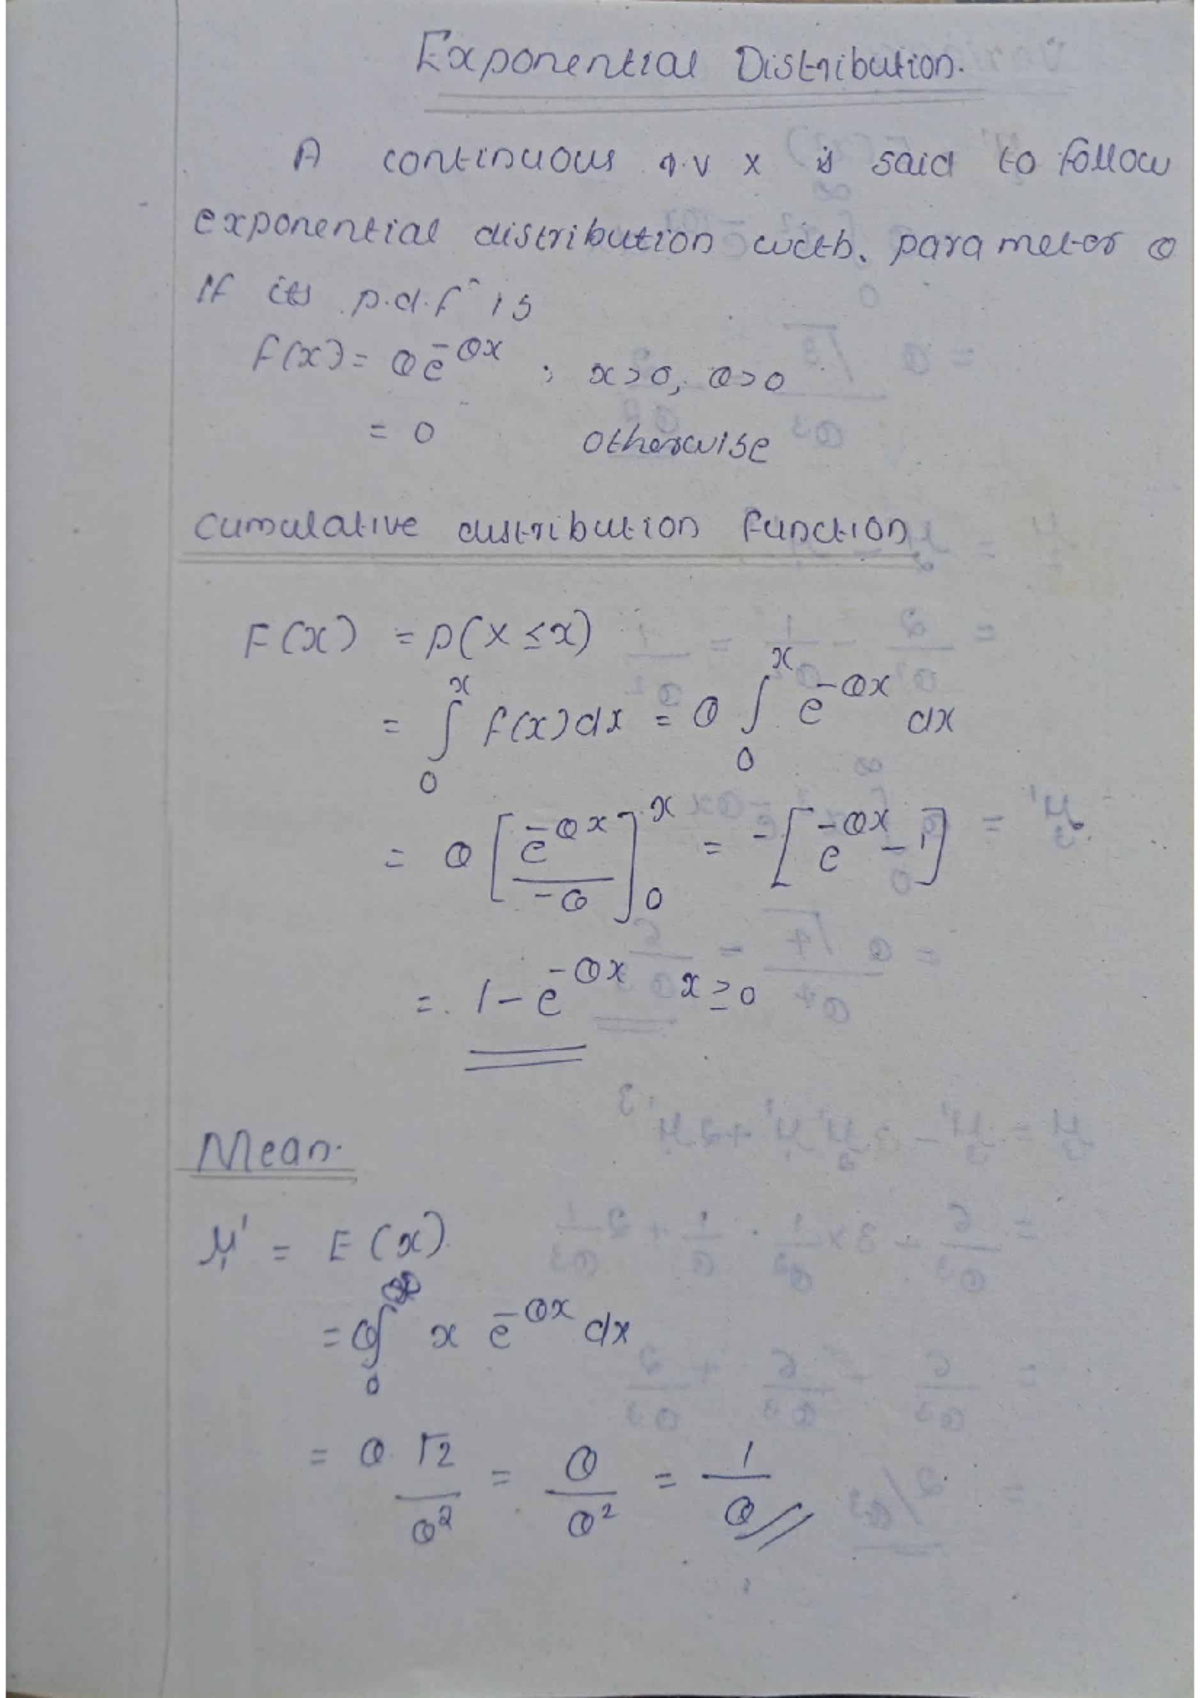 Exponential Distribution.
A continuous r.v x is said to follow
exponential distribution with. parameter θ
If its p.d.f^n is
f(x) = θe^{-θx} ; x>0, θ>0
= 0 otherwise
Cumulative distribution function
F(x) = P(X ≤ x)
= ∫_0^x f(x)dx = θ ∫_0^x e^{-θx} dx
= θ [e^{-θx}/-θ]_0^x = -[e^{-θx} - 1]
= 1 - e^{-θx} x ≥ 0
Mean.
μ₁' = E(x)
= θ∫_0^∞ x e^{-θx} dx
= θ Γ2/θ² = θ/θ² = 1/θ //